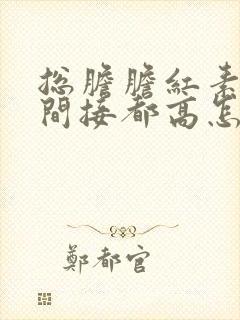 总膽膽紅素
間接都高怎
鄭都官